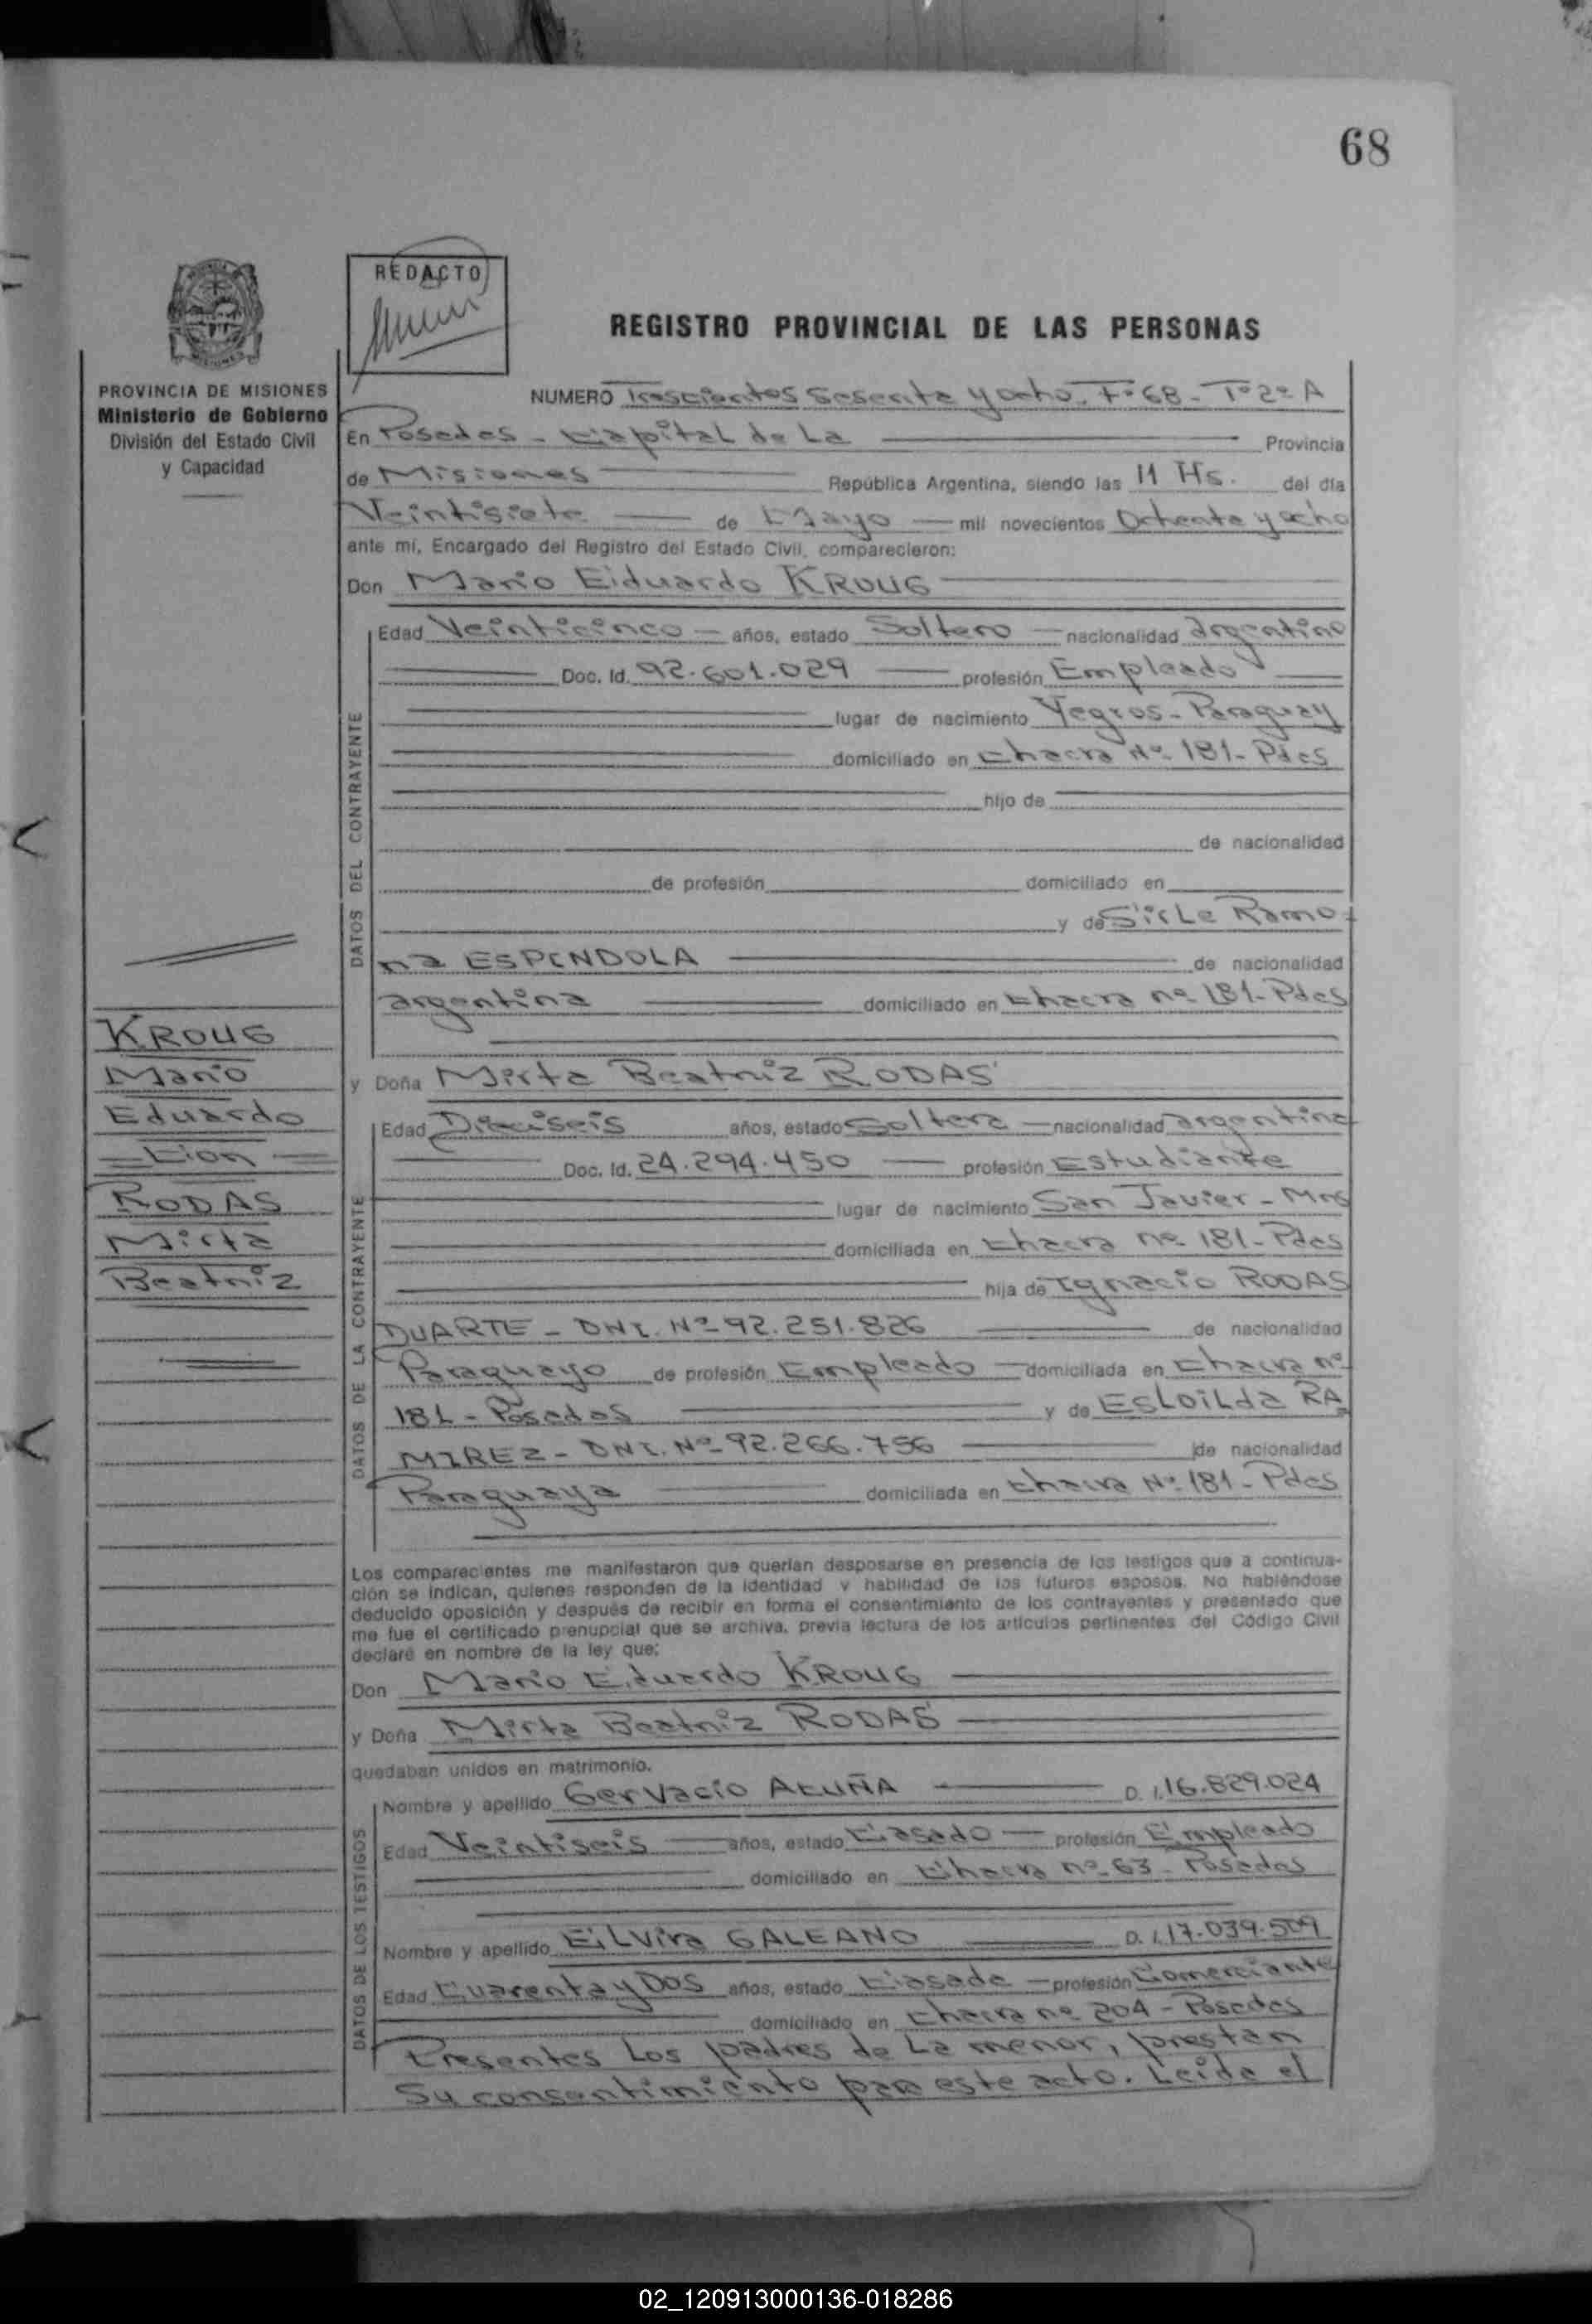 68
REDACTO
REGISTRO PROVINCIAL DE LAS PERSONAS
PROVINCIA DE MISIONES
Ministerio de Gobierno
División del Estado Civil
y Capacidad
NUMERO Trescientos Sesenta y ocho. Fº68 - Tº2º A
En Posadas - Capital de La Provincia
de Misiones República Argentina, siendo las 11 Hs. del día
Veintisiete de Mayo mil novecientos Ochenta y ocho
ante mí, Encargado del Registro del Estado Civil, comparecieron:
Don Mario Eduardo KROUG
DATOS DEL CONTRAYENTE
Edad Veinticinco años, estado Soltero nacionalidad argentino
Doc. Id. 92.601.029 profesión Empleado
lugar de nacimiento Yegros - Paraguay
domiciliado en Chacra Nº 181 - Pdas
hijo de
de nacionalidad
de profesión domiciliado en
y de Sirle Ramo-
na ESPINDOLA de nacionalidad
argentina domiciliado en Chacra nº 181 - Pdas
KROUG
Mario
Eduardo
Con
RODAS
Mirta
Beatriz
y Doña Mirta Beatriz RODAS
DATOS DE LA CONTRAYENTE
Edad Dieciseis años, estado Soltera nacionalidad argentina
Doc. Id. 24.294.450 profesión Estudiante
lugar de nacimiento San Javier - Mnes
domiciliada en Chacra nº 181 - Pdas
hija de Ignacio RODAS
DUARTE - DNI. Nº 92.251.826 de nacionalidad
Paraguayo de profesión Empleado domiciliada en Chacra nº
181 - Posadas y de Esloilda RA
MIREZ - DNI. Nº 92.266.756 de nacionalidad
Paraguaya domiciliada en Chacra Nº 181 - Pdas
Los comparecientes me manifestaron que querían desposarse en presencia de los testigos que a continua-
ción se indican, quienes responden de la identidad y habilidad de los futuros esposos. No habiéndose
deducido oposición y después de recibir en forma el consentimiento de los contrayentes y presentado que
me fue el certificado prenupcial que se archiva, previa lectura de los artículos pertinentes del Código Civil
declaré en nombre de la ley que:
Don Mario Eduardo KROUG
y Doña Mirta Beatriz RODAS
quedaban unidos en matrimonio.
DATOS DE LOS TESTIGOS
Nombre y apellido Gervacio ACUÑA D. I. 16.829.024
Edad Veintiseis años, estado Casado profesión Empleado
domiciliado en Chacra nº 63 - Posadas
Nombre y apellido Elvira GALEANO D. I. 17.039.509
Edad Cuarenta y Dos años, estado Casada profesión Comerciante
domiciliado en Chacra nº 204 - Posadas
Presentes Los padres de La menor, prestan
Su consentimiento para este acto. Leida el
02_120913000136-018286